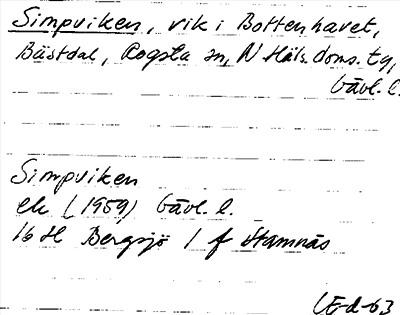 Simpviken, vik i Bottenhavet,
Båstdal, Rogsta sn, N Häls. doms. tg,
Gävl. l.
Simpviken
ek (1959) Gävl. l.
16 H Bergsjö 1 f Stamnäs